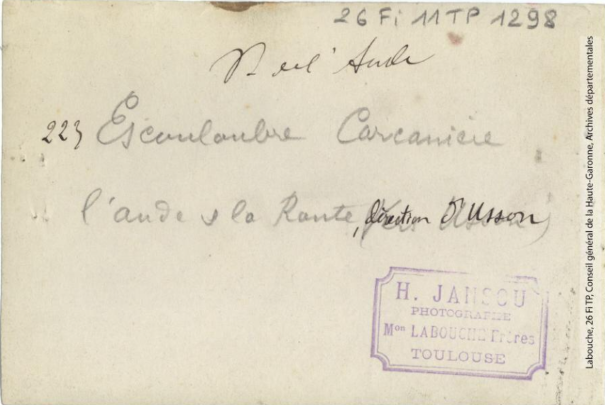 26 Fi 11 TP 1298
l'Aude
223 Escouloubre Carcanière
l'aude & la Route, direction d'Usson
H. JANSOU
PHOTOGRAPHE
Mon LABOUCHE Frères
TOULOUSE
Labouche, 26 Fi TP, Conseil général de la Haute-Garonne, Archives départementales